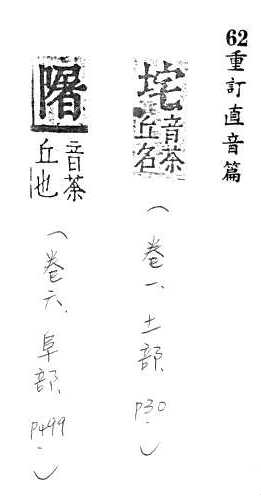 62重訂直音篇
垞 音茶丘名
(巻一、土部、P30)
䧅 音茶丘也
(巻六、阜部、P499)